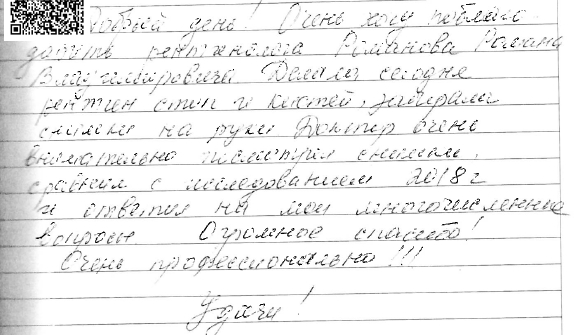 Добрый день! Очень хочу поблаго-
дарить рентгенолога Романова Романа
Владимировича. Делали сегодня
рентген стоп и кистей, забирали
снимки на руки. Доктор очень
внимательно посмотрел снимки,
сравнил с исследованием 2018г
и ответил на мои многочисленные
вопросы. Огромное спасибо!
Очень профессионально!!!
Удачи!